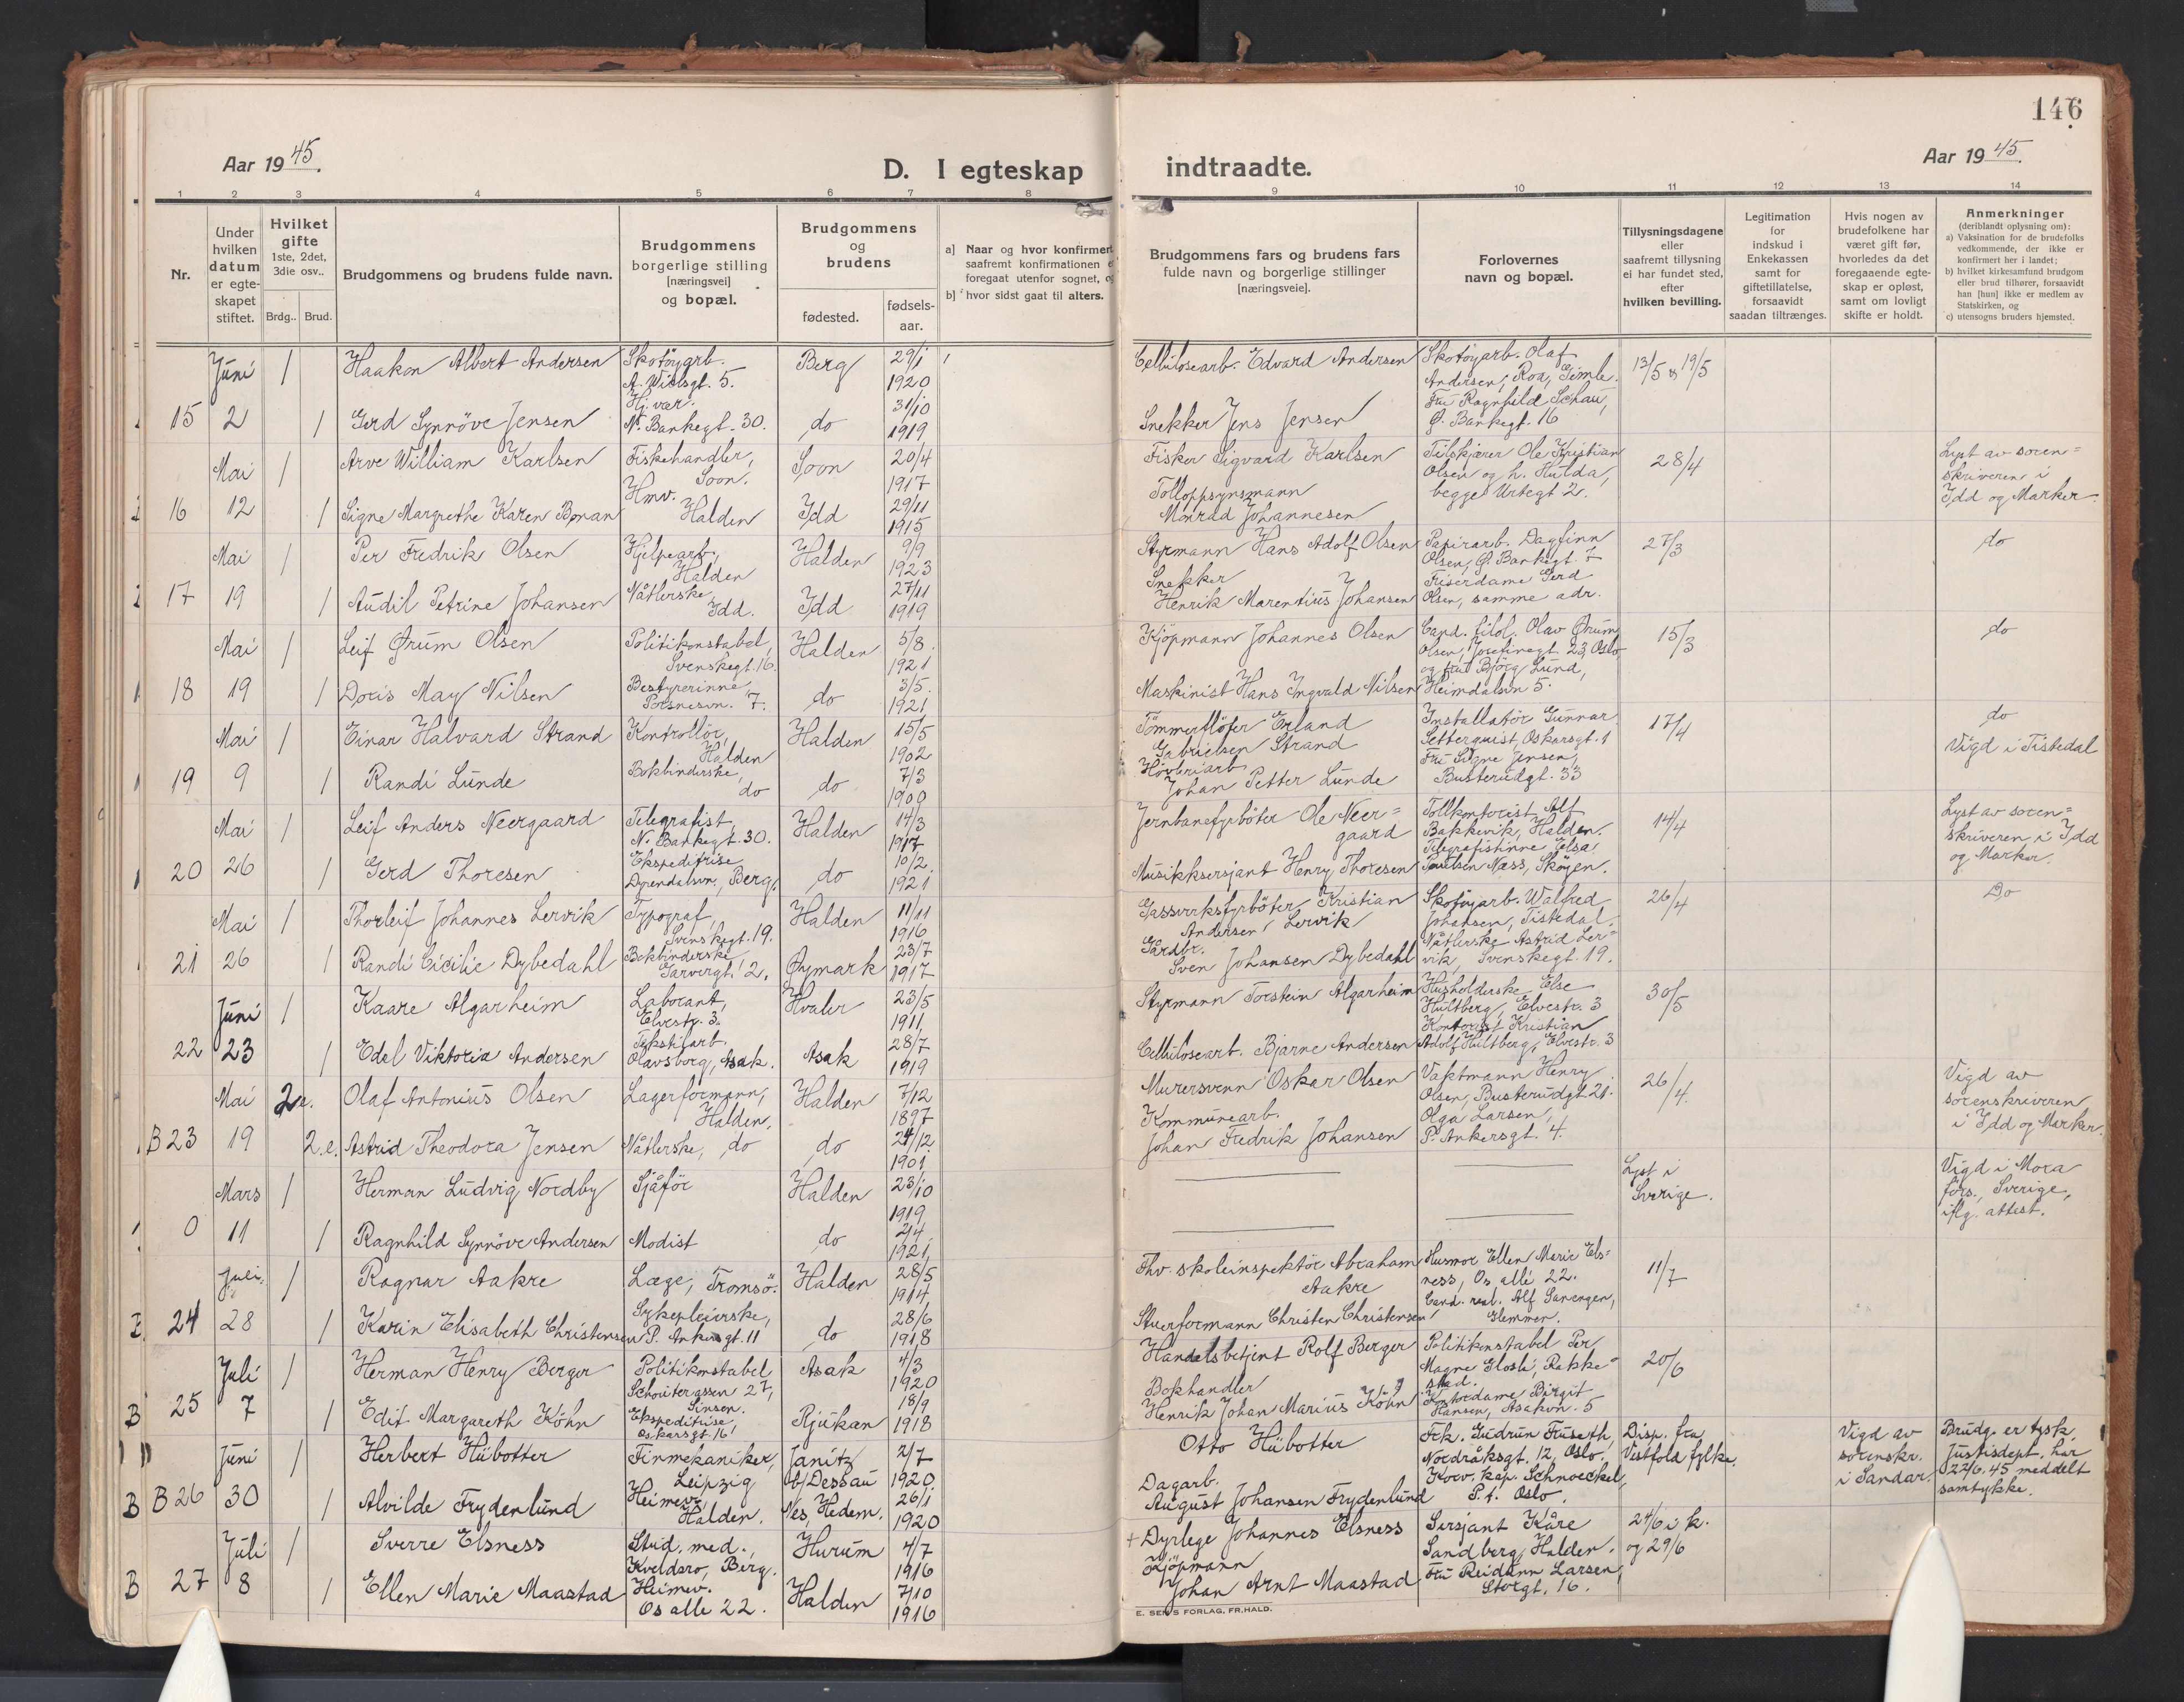 146
Aar 1945.
D. I egteskap indtraadte.
Aar 1945.
1 2 3 4 5 6 7 8 9 10 11 12 13 14
Nr.
Under hvilken datum er egteskapet stiftet.
Hvilket gifte
1ste, 2det, 3die osv..
Brdg.. Brud.
Brudgommens og brudens fulde navn.
Brudgommens
borgerlige stilling
[næringsvei]
og bopæl.
Brudgommens
og
brudens
fødested.
fødsels-
aar.
a] Naar og hvor konfirmert
saafremt konfirmationen
foregaat utenfor sognet,
b] hvor sidst gaat til alters.
Brudgommens fars og brudens fars
fulde navn og borgerlige stillinger
[næringsveie].
Forlovernes
navn og bopæl.
Tillysningsdagene
eller
saafremt tillysning
ei har fundet sted,
efter
hvilken bevilling.
Legitimation
for
indskud i
Enkekassen
samt for
giftetillatelse,
forsaavidt
saadan tiltrænges.
Hvis nogen av
brudefolkene har
været gift før,
hvorledes da det
foregaaende egte-
skap er opløst,
samt om lovligt
skifte er holdt.
Anmerkninger
(deriblandt oplysning om):
a) Vaksination for de brudefolks
vedkommende, der ikke er
konfirmert her i landet;
b) hvilket kirkesamfund brudgom
eller brud tilhører, forsaavidt
han [hun] ikke er medlem av
Statskirken, og
c) utensogns bruders hjemsted.
Juni 1 Haakon Albert Andersen Skotøyarb. A. Wielsgt. 5. Berg 29/1 1920 Cellulosearb. Edvard Andersen Skotøyarb. Olaf Andersen, Roa, Gimle. 13/5 & 19/5
15 2 1 Gerd Synnöve Jensen Hj. vær. N. Bankegt. 30. do 31/10 1919 Snekker Jens Jensen Fru Ragnhild Schau, Ø. Bankegt. 16
Mai 1 Arve William Karlsen Fiskehandler, Soon. Soon 20/4 1917 Fisker Sigvard Karlsen Tilskjærer Ole Kristian Olsen og h. Hulda, begge Urtegt 2. 28/4 Lyst av soren= skriveren i Idd og Marker
16 12 1 Signe Margrethe Karen Bonan Hmv. Halden Idd 29/11 1915 Tolloppsynsmann Monrad Johannesen
Mai 1 Per Fredrik Olsen Hjelpearb, Halden Halden 9/9 1923 Styrmann Hans Adolf Olsen Papirarb. Dagfinn Olsen, Ø. Bankegt. 7 27/3 do
17 19 1 Audil Petrine Johansen Nåtlerske, Idd. Idd 27/11 1919 Snekker Henrik Marentius Johansen Friserdame Gerd Olsen, samme adr.
Mai 1 Leif Ørum Olsen Politikonstabel, Svenskegt. 16. Halden 5/8 1921 Kjöpmann Johannes Olsen Cand. filol. Olav Ørum Olsen, Josefinegt 23, Oslo, 15/3 do
18 19 1 Doris May Nilsen Bestyrerinne 7. do 3/5 1921 Maskinist Hans Ingvald Nilsen og fru Björg Lund, Heimdalsv 5.
Mai 1 Einar Halvard Strand Kontrollör, Halden Halden 15/5 1902 Tömmerfløter Erland Gabrielsen Strand Installatör Gunnar Setterquist, Oskarsgt. 1 17/4 do Vigd i Tistedal
19 9 1 Randi Lunde Bokbinderske, do do 7/3 1900 Høvleriarb Johan Petter Lunde Fru Signe Jensen, Busterudgt. 33
Mai 1 Leif Anders Neergaard Telegrafist, N. Bankegt. 30. Halden 14/3 1917 Jernbanefyrböter Ole Neer= gaard Tollkontorist Alf Bakkevik, Halden. 14/4 Lyst av soren= skriveren i Idd og Marker.
20 26 1 Gerd Thoresen Ekspeditrise Dyrendalsvn., Berg. do 10/2 1921 Musikksersjant Henry Thoresen Telegrafistinne Elsa Næss, Skøyen.
Mai 1 Thorleif Johannes Lervik Typograf, Svenskegt. 19. Halden 11/11 1916 Gassverksfyrböter Kristian Andersen Lervik Skotøyarb. Walfred Johansen, Tistedal, 26/4 Do
21 26 1 Randi Cicilie Dybedahl Bokbinderske Garvergt. 2. Øymark 23/7 1917 Gårdbr. Sven Johansen Dybedahl Nåtlerske Astrid Ler= vik, Svenskegt. 19.
Juni 1 Kaare Algarheim Laborant, Elvestr. 3. Hvaler 23/5 1911 Styrmann Torstein Algarheim Husholderske Else Hultberg, Elvestr. 3 30/5
22 23 1 Edel Viktoria Andersen Tekstilarb. Olavsborg, Asak. Asak 28/7 1919 Cellulosearb. Bjarne Andersen Kontorist Kristian Adolf Hultberg, Elvestr. 3
Mai 2e. Olaf Antonius Olsen Lagerformann, Halden. Halden 7/12 1897 Murersvenn Oskar Olsen Vaktmann Henry Olsen, Busterudgt 21. 26/4. Vigd av sorenskriveren i Idd og Marker.
B 23 19 2.e. Astrid Theodora Jensen Nåtlerske, do do 24/12 1901 Kommunearb. Johan Fredrik Johansen Olga Larsen, P. Ankersgt. 4.
Mars 1 Herman Ludvig Nordby Sjåför Halden 23/10 1919 Lyst i Sverige. Vigd i Mora förs., Sverige, iflg. attest.
0 11 1 Ragnhild Synnöve Andersen Modist do 2/4 1921
Juli 1 Ragnar Aakre Læge, Tromsö. Halden 28/5 1914 Fhv. skoleinspektör Abraham Aakre Husmor Ellen Marie Els= ness, Os allé 22. 11/7
24 28 1 Karin Elisabeth Christensen Sykepleierske, P. Ankersgt. 11 do 28/6 1918 Stuerformann Christen Christensen Cand. real. Alf Sanengen, Glemmen.
Juli 1 Herman Henry Berger Politikonstabel Schouterassen 27, Sinsen. Asak 4/3 1920 Handelsbetjent Rolf Berger Politikonstabel Per Magne Glosli, Rakke= stad. 20/6
B 25 7 1 Edit Margareth Köhn Ekspeditrise, Oskarsgt. 16 Rjukan 18/9 1918 Bokhandler Henrik Johan Marius Köhn Kontordame Birgit Hansen, Asakvn. 5
Juni 1 Herbert Hübotter Finmekaniker, Leipzig Janitz b/Dessau 2/7 1920 Otto Hübotter Frk. Gudrun Fuseth, Nordråksgt. 12, Oslo. Disp. fra Vestfold fylke. Vigd av sorenskr. i Sandar. Brudg. er tysk. Justisdept. har 22/6.45 meddelt samtykke.
B B 26 30 1 Alvilde Frydenlund Heimev, Halden. Nes, Hedem. 26/1 1920 Dagarb. August Johansen Frydenlund Korv. kap. Schnoeckel, P.t. Oslo.
Juli 1 Sverre Elsness Stud. med., Kveldsro, Berg. Hurum 4/7 1916 + Dyrlege Johannes Elsness Sersjant Kåre Sandberg, Halden. 24/6 i k. og 29/6
B 27 8 1 Ellen Marie Maastad Heimev. Os alle 22. Halden 7/10 1916 Kjöpmann Johan Arnt Maastad Fru Reidunn Larsen, Storgt. 16.
E. SEM'S FORLAG, FR.HALD.